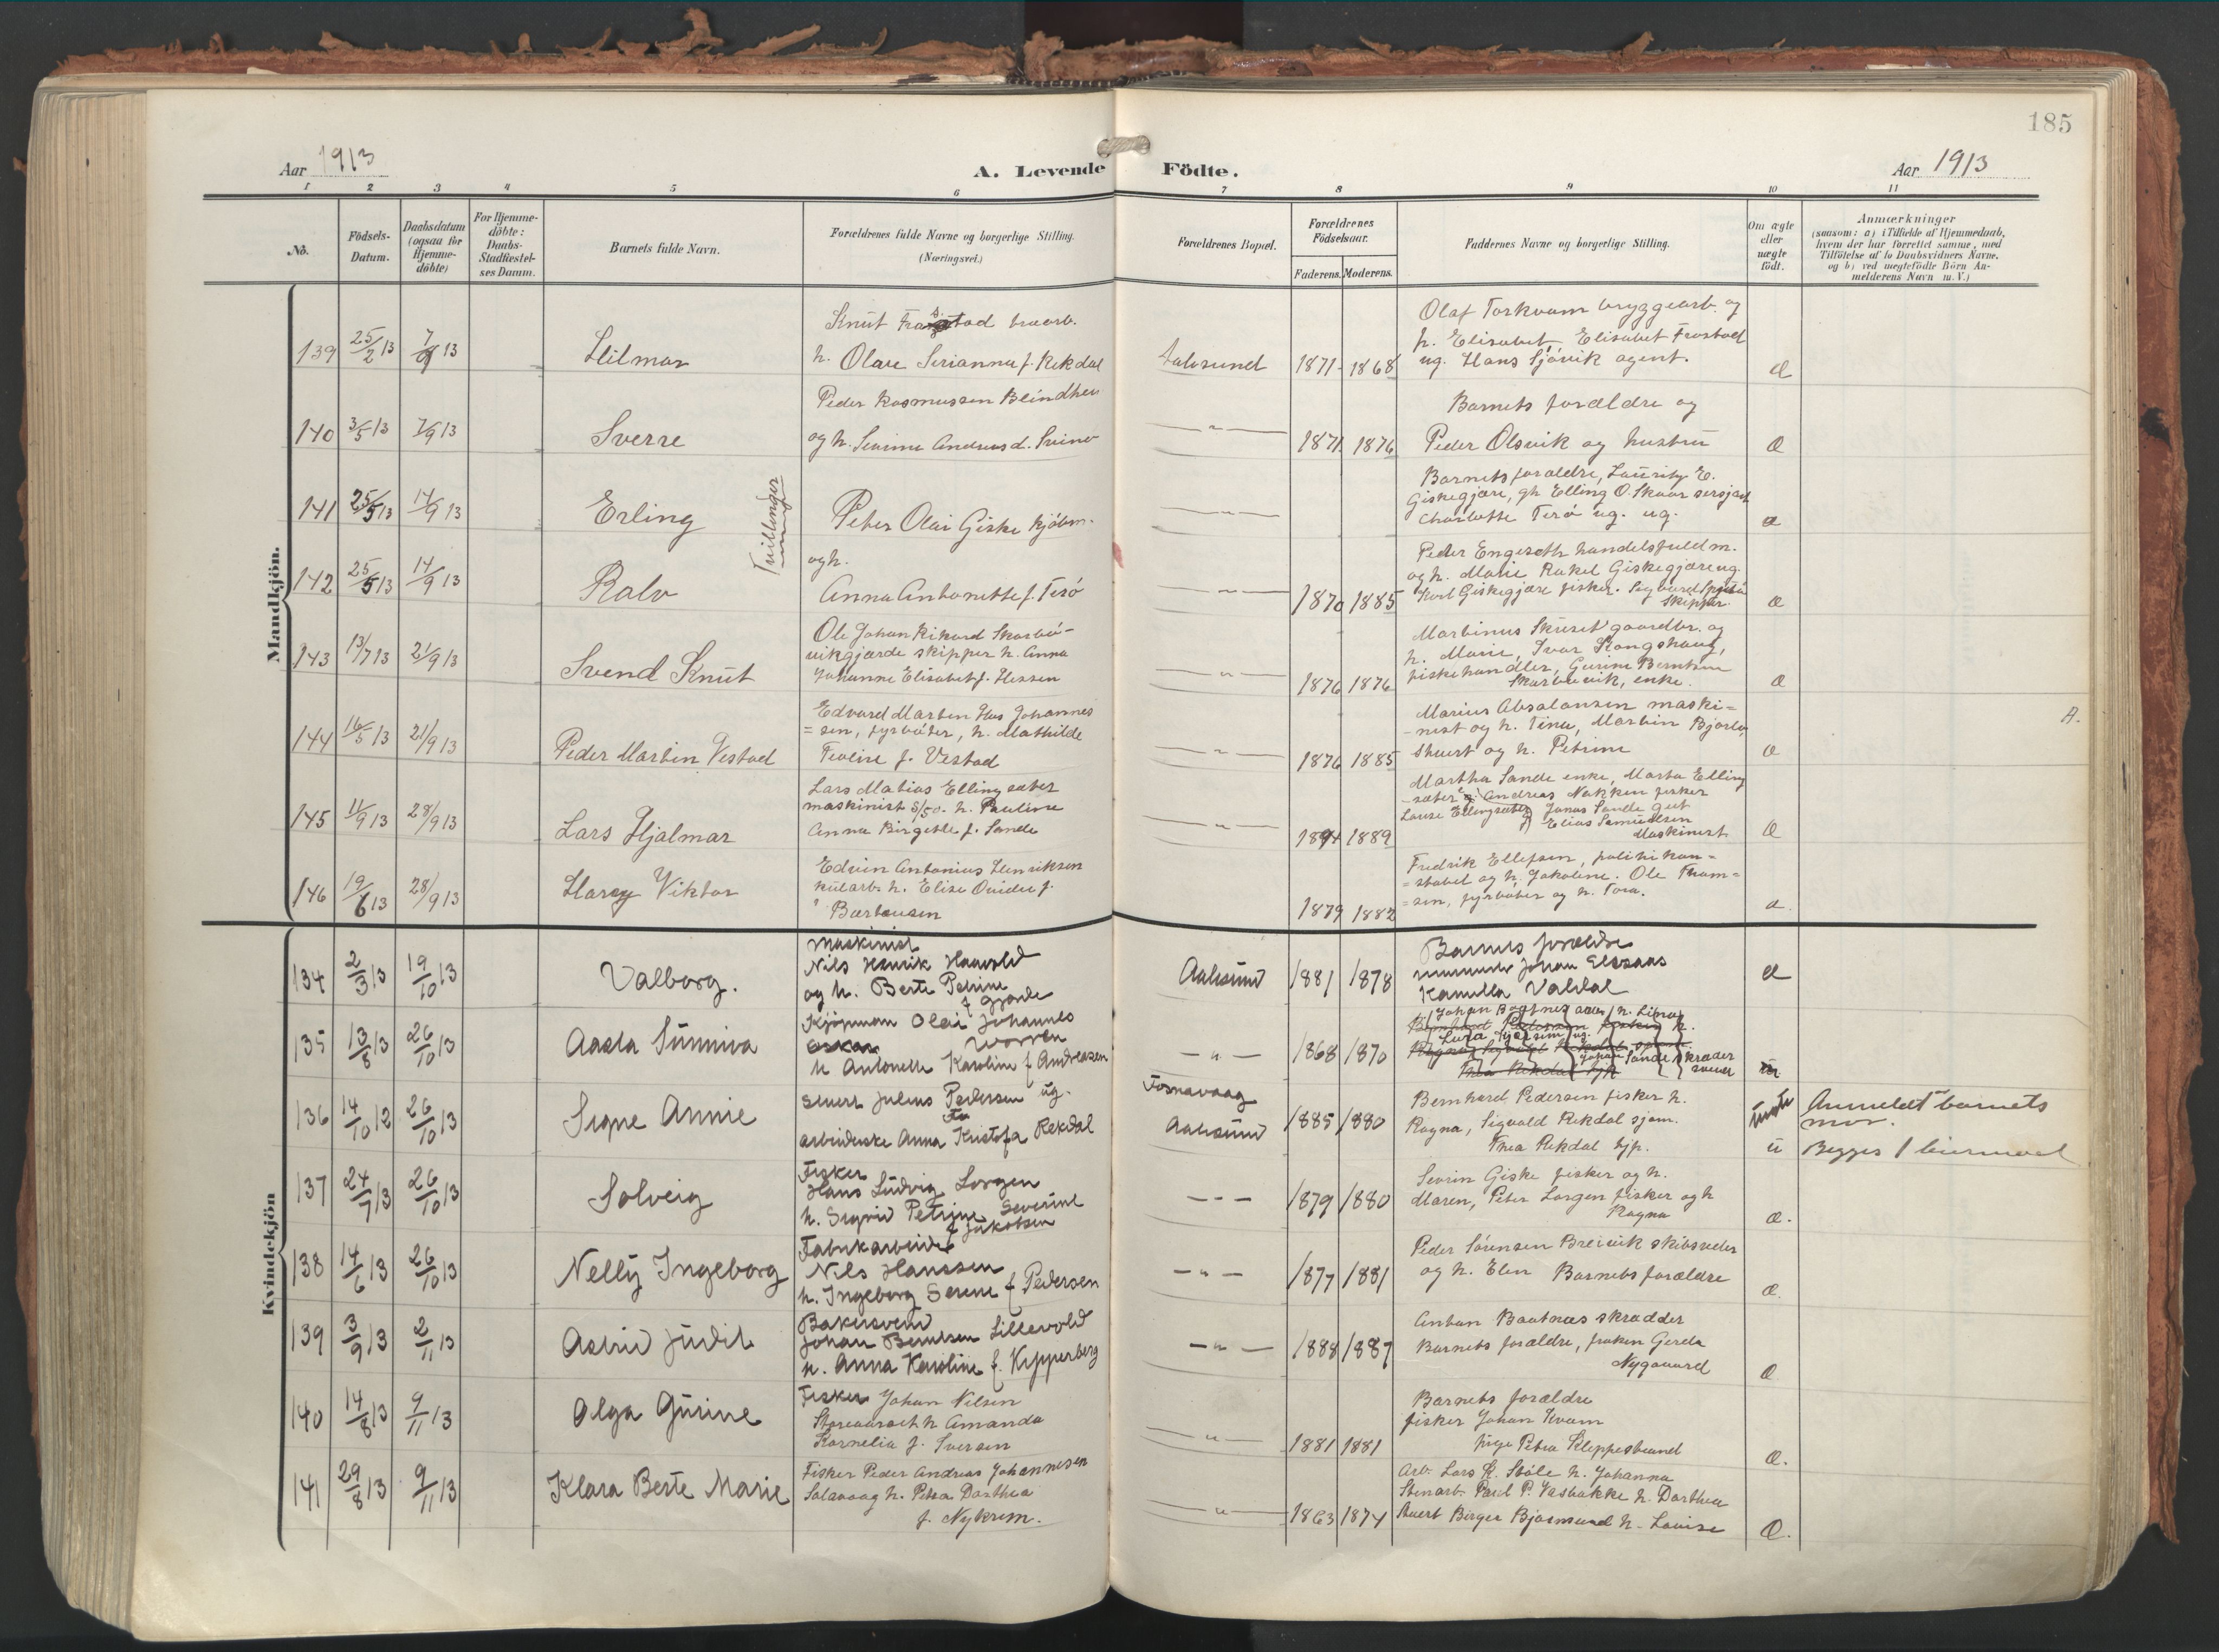 185
Aar 1913
A. Levende Födte.
Aar 1913
1 2 3 4 5 6 7 8 9 10 11
No.
Födsels-Datum.
Daabsdatum (ogsaa for Hjemme-döbte)
For Hjemme-döbte: Daabs-Stadfæstel-ses Datum.
Barnets fulde Navn.
Forældrenes fulde Navne og borgerlige Stilling. (Næringsvei.)
Forældrenes Bopæl.
Forældrenes Födselsaar.
Faderens. Moderens.
Faddernes Navne og borgerlige Stilling.
Om ægte eller uægte födt.
Anmærkninger
(saasom: a) i Tilfælde af Hjemmedaab,
hvem der har forrettet samme, med
Tilföielse af to Daabsvidners Navne.
og b) ved uægtefödte Börn An-
melderens Navn m. V.)
Mandkjön.
139 25/2 13 7/9 13 Hilmar
Knut Frostad
h. Olave Serianna f. Rekdal
Aalesund 1871 1868
Olaf Torkvam bryggearb. og
h. Elisabet, Elisabet Frostad
ug. Hans Sjövik agent.
140 3/5 13 7/9 13 Sverre
Peder Rasmussen Blindhei
og h. Severine Andreas d. Svino
– " – 1871 1876
Barnets forældre og
Peder Olsvik og hustru
Tvillinger
141 25/5 13 14/9 13 Erling
Peter Olai Giske kjöbm.
– " –
Barnets forældre, Lauritz E.
Giskegjære, gh. Elling O. Skaar
Charlotte Terö ug. ug.
142 25/5 13 14/9 13 Ralv
og h.
Anna Antonette f. Terö
– " – 1870 1885
Peder Engeseth handelsfuldm.
og h. Marie Rakel Giskegjære ug.
Karl Giskegjære fisker. Sigvard
skipper.
143 13/7 13 21/9 13 Svend Knut
Ole Johan Rikard Skarbö-
vikgjærde skipper h. Anna
Johanne Elisabet f. Hessen
– " – 1876 1876
Martinus Skuset gaardbr. og
h. Marie, Ivar Kongshaug,
fiskehandler, Gurine Berntsen
Skarbövik, enke.
144 16/5 13 21/9 13 Peder Martin Vestad
Edvard Martin Johannes
= sen, fyrböter, h. Mathilde
Teoline f. Vestad
– " – 1876 1885
Marius Absalonsen maski=
-nist og h. Tina, Martin
Stuert og h. Petrine
A.
145 11/9 13 28/9 13 Lars Hjalmar
Lars Matias Ellingsæter
maskinist h. Pauline
Anna Birgitte f. Sande
– " – 1894 1889
Martha Sande enke, Marta Elling
-sæter Andreas Nakken fisker
Lause Ellingsæter, Jonas Sande gut
Elias Samuelsen
Maskinist
146 19/6 13 28/9 13 Harry Viktor
Edvin Antonius Henriksen
kularb. h. Elise Ovidia f.
Bærtausen
1879 1882
Fredrik Ellefsen, politikon=
= stabel og h. Jakoline. Ole Thom=
= sen, fyrböter og h. Tora.
Kvindekjön
134 2/3 13 19/10 13 Valborg.
Maskinist
Nils Henrik Haavold
og h. Berte Petrine
f. Gjørde
Aalesund 1881 1878
Barnets forældre
Johan Elssaas
Kamilla Valdal
135 13/8 13 26/10 13 Aasta Sunniva
Kjöpman Olai Johannes
Oskar Worren
h Antonette Karoline f Andreasen
– " – 1868 1870
Johan h. Lina
ug.
Johan Sande skræder
svend
136 14/10 12 26/10 13 Signe Annie
Stuert Julius Pedersen ug.
arbeiderske Anna Kristofa Rekdal
Fosnavaag
Aalesund 1885 1880
Bernhard Pedersen fisker h.
Ragna, Sigvald Rekdal sjöm.
Thea Rekdal hjp.
uægte
u
Anmeldt barnets
mor.
Begges 1 leiermaal
137 24/7 13 26/10 13 Solveig
Fisker
Hans Ludvig Lorgen
h. Sigrid Petrine Severine
f Jakobsen
– " – 1879 1880
Severin Giske fisker og h.
Maren, Peter Lorgen fisker og h
Ragna
138 14/6 13 26/10 13 Nelly Ingeborg
Fabrikarbeider
Nils Hanssen
h. Ingeborg Serene f Pedersen
– " – 1877 1881
Peder Sörensen Breivik skibsreder
og h. Elen Barnets forældre
139 3/9 13 2/11 13 Astrid Judit
Bakersvend
Johan Berntsen Lillevold
h. Anna Karoline f. Kipperberg
– " – 1888 1887
Anton Baatnes skrædder
Barnets forældre, frøken Gerda
Nygaard
140 14/8 13 9/11 13 Olga Gurine
Fisker Johan Nilsen
h Amanda
Kornelia f. Iversen
– " – 1881 1881
Barnets forældre
fisker Johan Kvam
pige Petra Kleppestrand
141 29/8 13 9/11 13 Klara Berte Marie
Fisker Peder Andreas Johannesen
Solavaag h. Petra Dorthea
f. Nykrem.
– " – 1863 1874
Arb. Lars K. Støle h. Johanna
Stenarb. Paul P. Vasbakke h. Dorthea
Stuert Berger Bjørmund h. Lovise